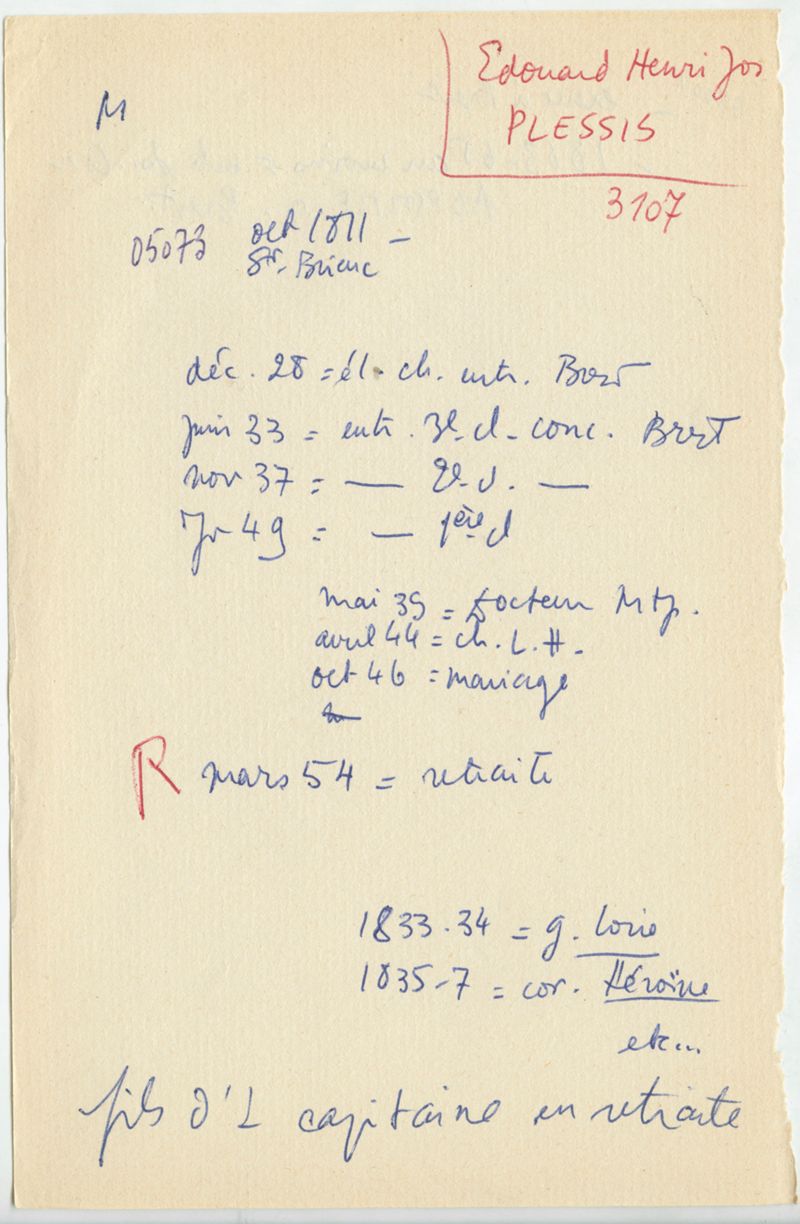 Edouard Henri Jos
PLESSIS
3107
M
05073 oct 1811 –
St. Brieuc
déc. 28 = él. ch. entr. Brest
juin 33 = entr. 3e cl. conc. Brest
nov 37 = — 2e cl. —
Jr 49 = — 1ère cl
mai 39 = Docteur Mtp.
avril 44 = ch. L.H.
oct 46 = mariage
R mars 54 = retraite
1833.34 = g. Loire
1835-7 = cor. Héroïne
etc...
fils d'1 capitaine en retraite